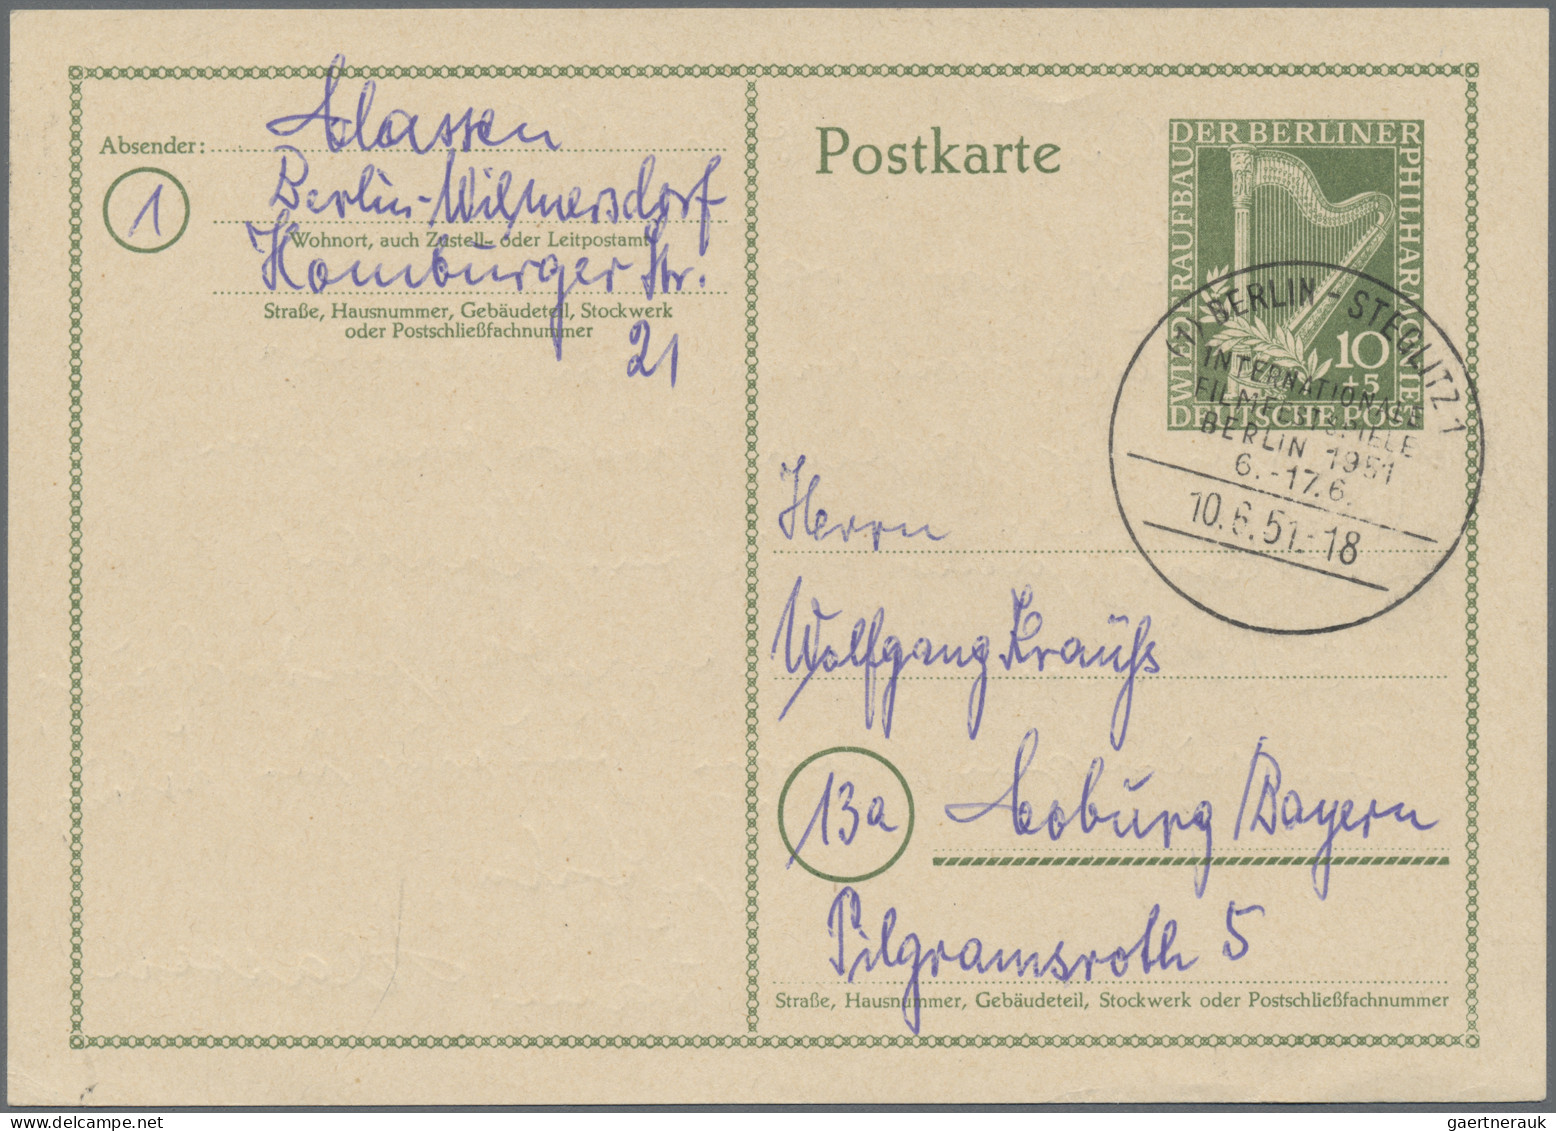 Absender: Classen
1
Berlin-Wilmersdorf
Wohnort, auch Zustell- oder Leitpostamt
Homburger Str.
Straße, Hausnummer, Gebäudeteil, Stockwerk
oder Postschließfachnummer
21
Postkarte
WIEDERAUFBAU DER BERLINER PHILHARMONIE
10
+5
DEUTSCHE POST
(1) BERLIN-STEGLITZ 1
INTERNATIONALE
FILMFESTSPIELE
BERLIN 1951
6.-17.6.
10.6.51.-18
Herrn
Wolfgang Krauß
13a Coburg/Bayern
Pilgramsroth 5
Straße, Hausnummer, Gebäudeteil, Stockwerk oder Postschließfachnummer
gaertnerauk